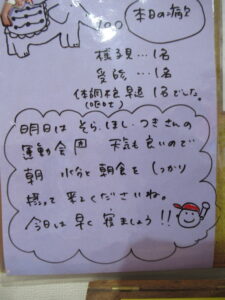 本日の病欠
様子見…1名
受診…1名
体調不良 早退 1名でした。
(嘔吐)
明日は そら、ほし、つきさんの
運動会 天気も良いので
朝 水分と朝食を しっかり
摂って 来てくださいね。
今日は 早く 寝ましょう!!